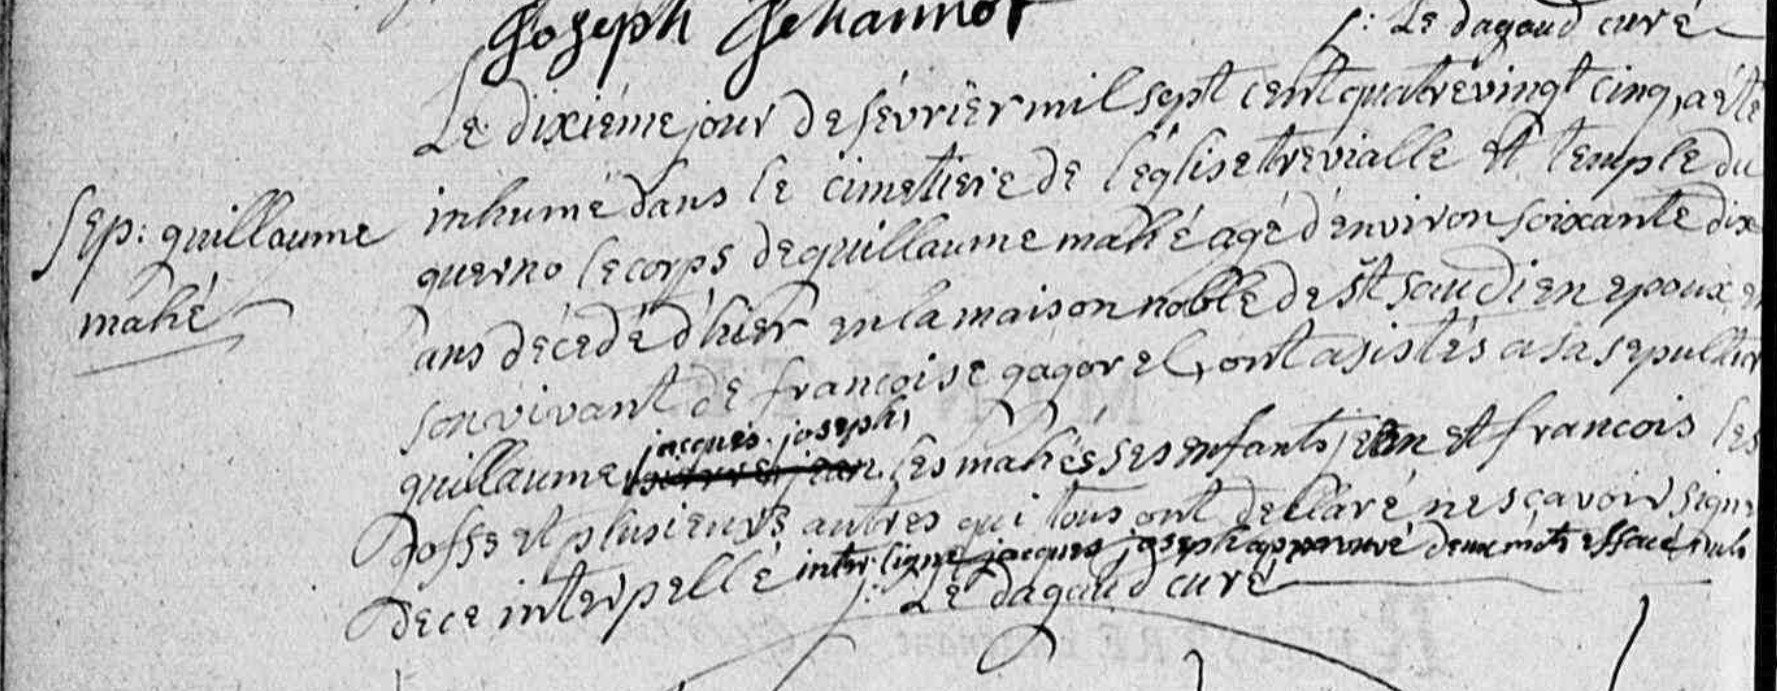 Joseph Jehannot
j: Le dagaud curé
Le dixiéme jour de février mil sept cent quatrevingt cinq, a été
inhumé dans le cimetiere de l'église trevialle et temple du
Sep: guillaume
guerno le corps de guillaume mahé agé d'environ soixante dix
mahé
ans décédé d'hier en la maison noble de st saudien epoux en
son vivant de francoise gagorel, ont asistés a sa sepultur
guillaume jacques joseph, les mahés ses enfants jean et francois les
et plusieurs autres qui tous ont declaré ne sçavoir signe
de ce interpellé interligne jacques joseph approuvé deux mots effacé nuls
j: Le dagaud curé